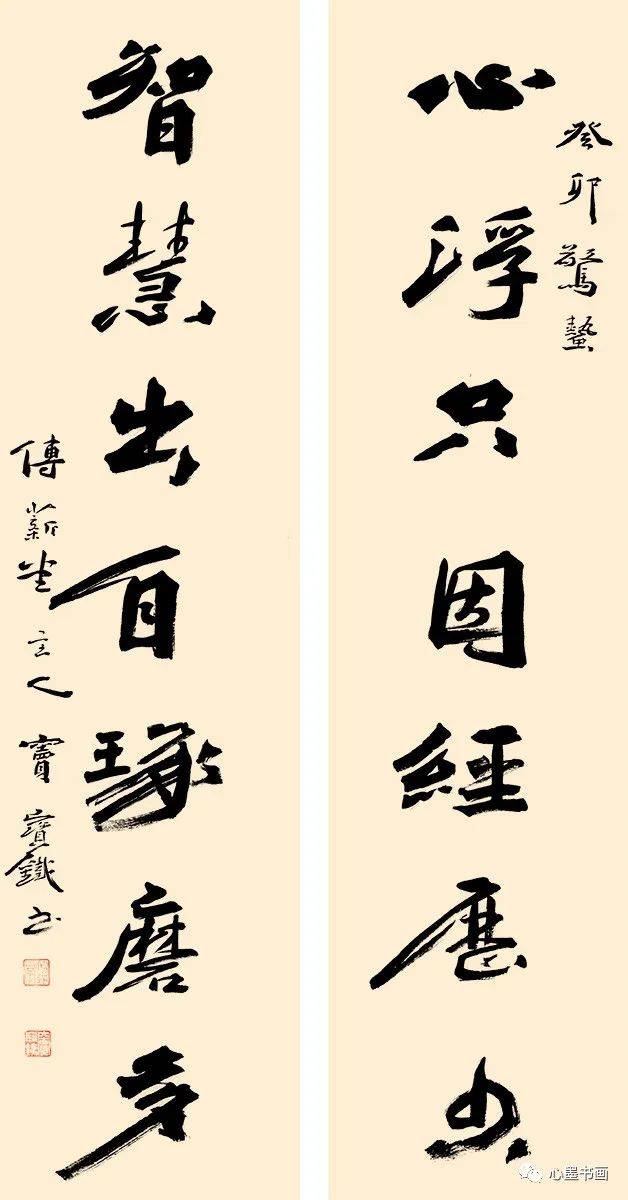 癸卯驚蟄
心浮只因經歷少
智慧出自琢磨多
傳薪堂主人竇寶鐵書
心墨书画